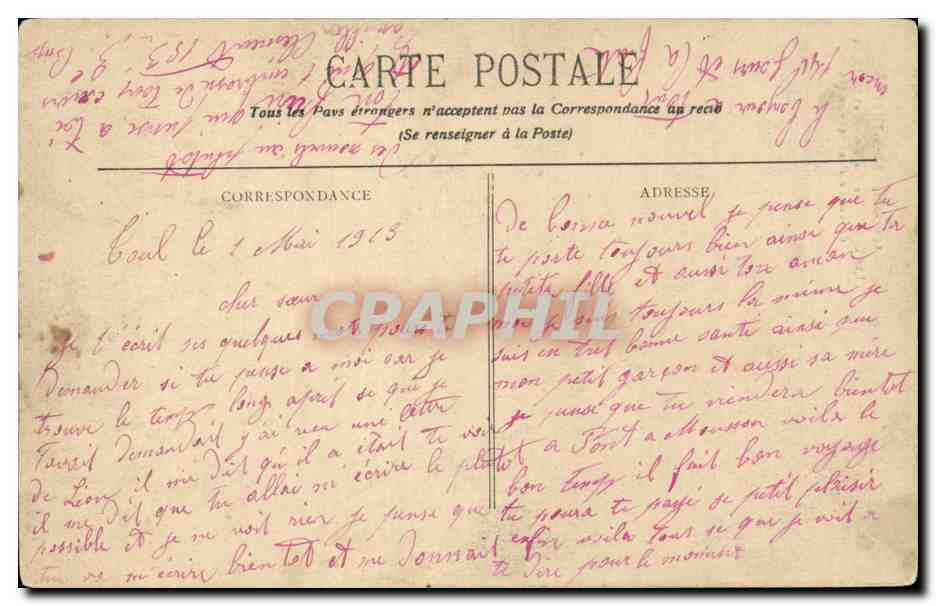 CARTE POSTALE
Tous les Pays étrangers n'acceptent pas la Correspondance au recto
(Se renseigner à la Poste)
CORRESPONDANCE
ADRESSE
Toul le 1 Mai 1913
cher sœur
Je t'écrit ses quelques mots pour te
demander si tu pense a moi car je
trouve le temp long aprèl se que je
tavait demandait j'ai rien une lettre
de Léon il me dit qu'il a était te voir
il me dit que tu allai m'écrire le plutot
possible et je ne voit rien je pense que
tu va m'écrire bientot et me donnait
de bonne nouvel je pense que tu
te porte toujours bien ainsi que ta
petite fille et aussi ton
moi je suis toujours la même je
suis en tret bonne santé ainsi que
mon petit garçon et aussi sa mère
je pense que tu viendera bientot
a Pont a Mousson voila le
bon temp il fait bon voyage
tu poura te payé se petit plaisir
enfin voila tous se que je voit a
te dire pour le moment
le bonjour a tout
CRAPHIL
des nouvels au plutot
qui pense a toi
et t'embrasse de tong cœurs